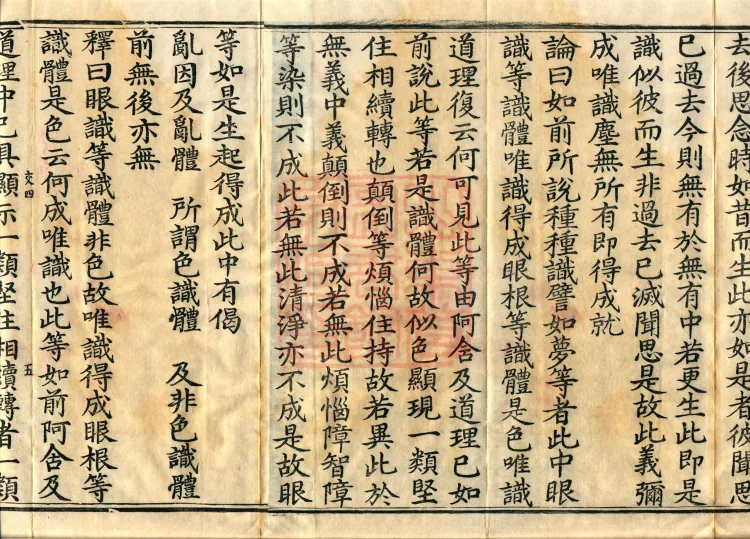 去後思念時如昔而生此亦如是者彼聞思
已過去今則無有於無有中若更生此即是
識似彼而生非過去已滅聞思是故此義彌
成唯識塵無所有即得成就
論曰如前所說種種識譬如夢等者此中眼
識等識體唯識得成眼根等識體是色唯識
道理復云何可見此等由阿含及道理已如
前說此等若是識體何故似色顯現一類堅
住相續轉也顛倒等煩惱住持故若異此於
無義中義顛倒則不成若無此煩惱障智障
等染則不成此若無此清淨亦不成是故眼
等如是生起得成此中有偈
亂因及亂體　所謂色識體　及非色識體
前無後亦無
釋曰眼識等識體非色故唯識得成眼根等
識體是色云何成唯識也此等如前阿含及
交四　五
道理中已具顯示一類堅住相續轉者一類